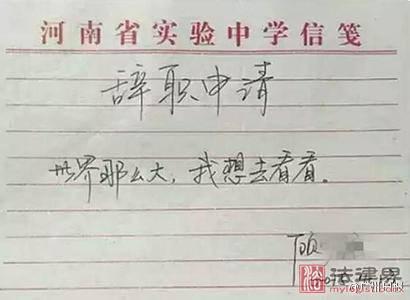 河南省实验中学信笺
辞职申请
世界那么大，我想去看看。
顾
法律界